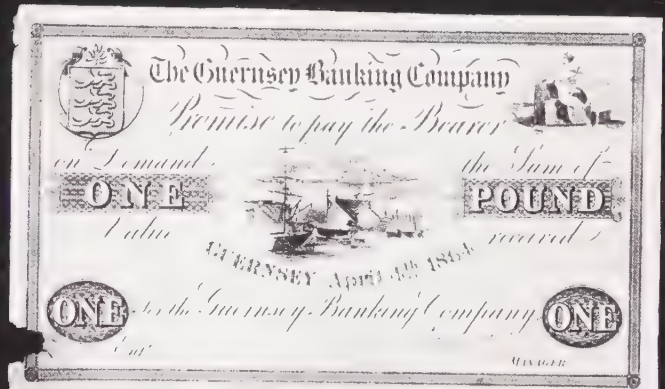 The Guernsey Banking Company
Promise to pay the Bearer
on Demand the Sum of
ONE POUND
Value received
GUERNSEY April 4th 1864
ONE For the Guernsey Banking Company ONE
Ent
MANAGER